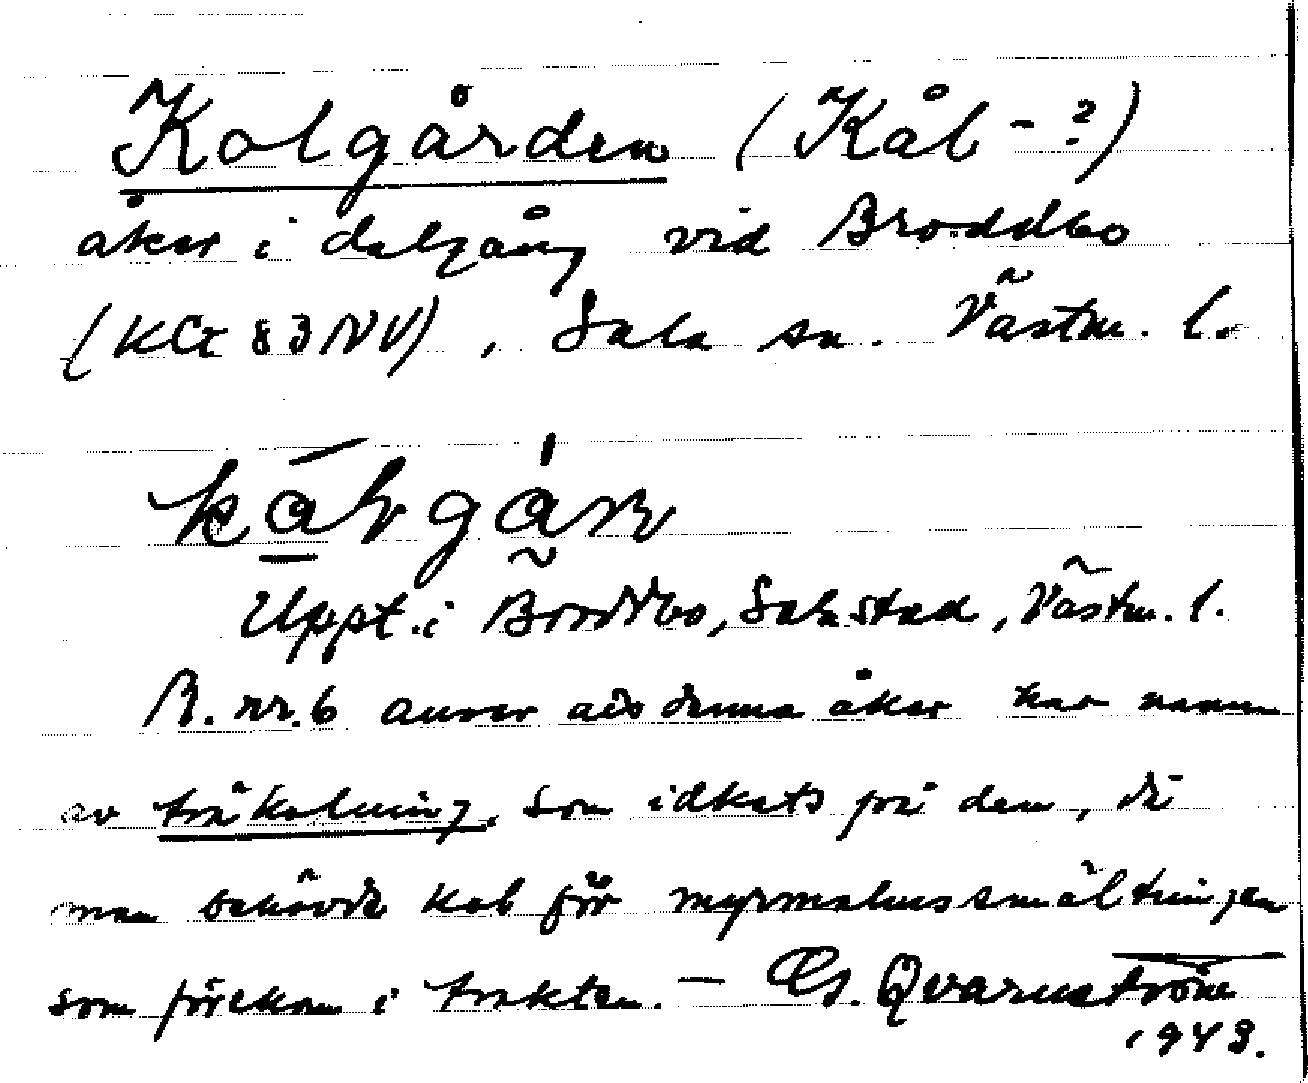 Kolgården (Kål-?)
åker i dalgång vid Broddbo
(KCt 83 NV), Sala sn. Västm. l.
kålgån
Uppt. i Broddbo, Sala stad, Västm. l.
B. nr. 6 anser att denna åker har namn
av träkolning, som idkats på den, då
man behövde kol för myrmalmssmältningen
som förekom i trakten. — G. Qvarnström
1943.